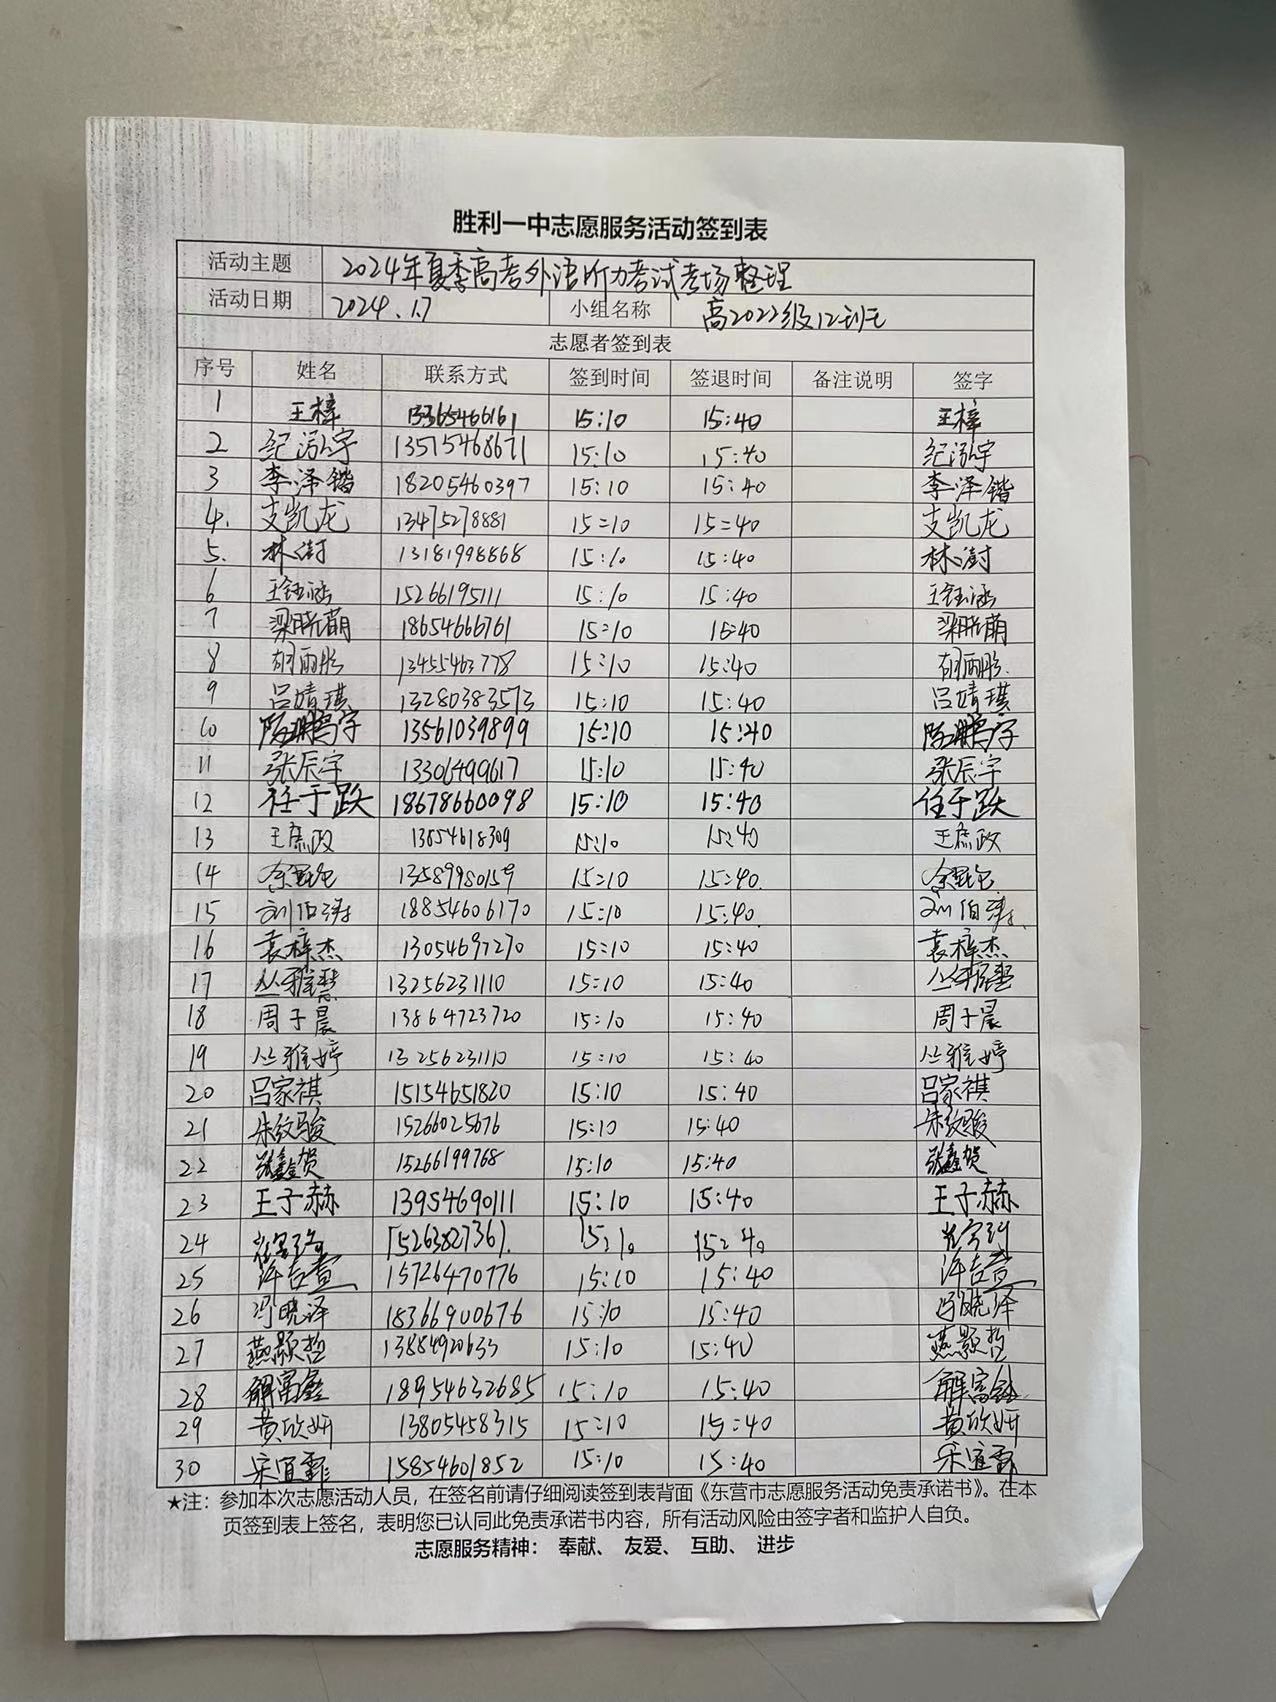 胜利一中志愿服务活动签到表
活动主题 2024年夏季高考外语听力考试考场整理
活动日期 2024.1.7 小组名称 高2022级12班
志愿者签到表
序号 姓名 联系方式 签到时间 签退时间 备注说明 签字
1 王梓 13365466161 15:10 15:40 王梓
2 纪泓宇 13515468671 15:10 15:40 纪泓宇
3 李泽锴 18205460397 15:10 15:40 李泽锴
4. 支凯龙 13475278881 15:10 15:40 支凯龙
5. 林澍 13181998868 15:10 15:40 林澍
6 王钰涵 15266195111 15:10 15:40 王钰涵
7 梁晓萌 18654666761 15:10 15:40 梁晓萌
8 胡雨彤 13455463778 15:10 15:40 胡雨彤
9 吕婧琪 13280383573 15:10 15:40 吕婧琪
10 陈鹏宇 13561039899 15:10 15:40 陈鹏宇
11 张辰宇 13306499617 15:10 15:40 张辰宇
12 任于跃 18678660098 15:10 15:40 任于跃
13 王庶政 13654618309 15:10 15:40 王庶政
14 13589980159 15:10 15:40
15 刘伯涛 18854606170 15:10 15:40 刘伯涛
16 袁梓杰 13054697270 15:10 15:40 袁梓杰
17 丛雅慧 13256231110 15:10 15:40 丛雅慧
18 周于晨 13864723720 15:10 15:40 周于晨
19 丛雅婷 13256231110 15:10 15:40 丛雅婷
20 吕家祺 15154651820 15:10 15:40 吕家祺
21 朱纹骏 15266025676 15:10 15:40 朱纹骏
22 张鑫贺 15266199768 15:10 15:40 张鑫贺
23 王子赫 13954690111 15:10 15:40 王子赫
24 15263827361. 15:10 15:40
25 许吉萱 15726470776 15:10 15:40 许吉萱
26 冯晓泽 18366900676 15:10 15:40 冯晓泽
27 燕颢哲 13884920633 15:10 15:40 燕颢哲
28 解富鑫 18954632685 15:10 15:40 解富鑫
29 黄欣妍 13805458315 15:10 15:40 黄欣妍
30 宋宜霏 15854601852 15:10 15:40 宋宜霏
★注：参加本次志愿活动人员，在签名前请仔细阅读签到表背面《东营市志愿服务活动免责承诺书》。在本
页签到表上签名，表明您已认同此免责承诺书内容，所有活动风险由签字者和监护人自负。
志愿服务精神： 奉献、 友爱、 互助、 进步